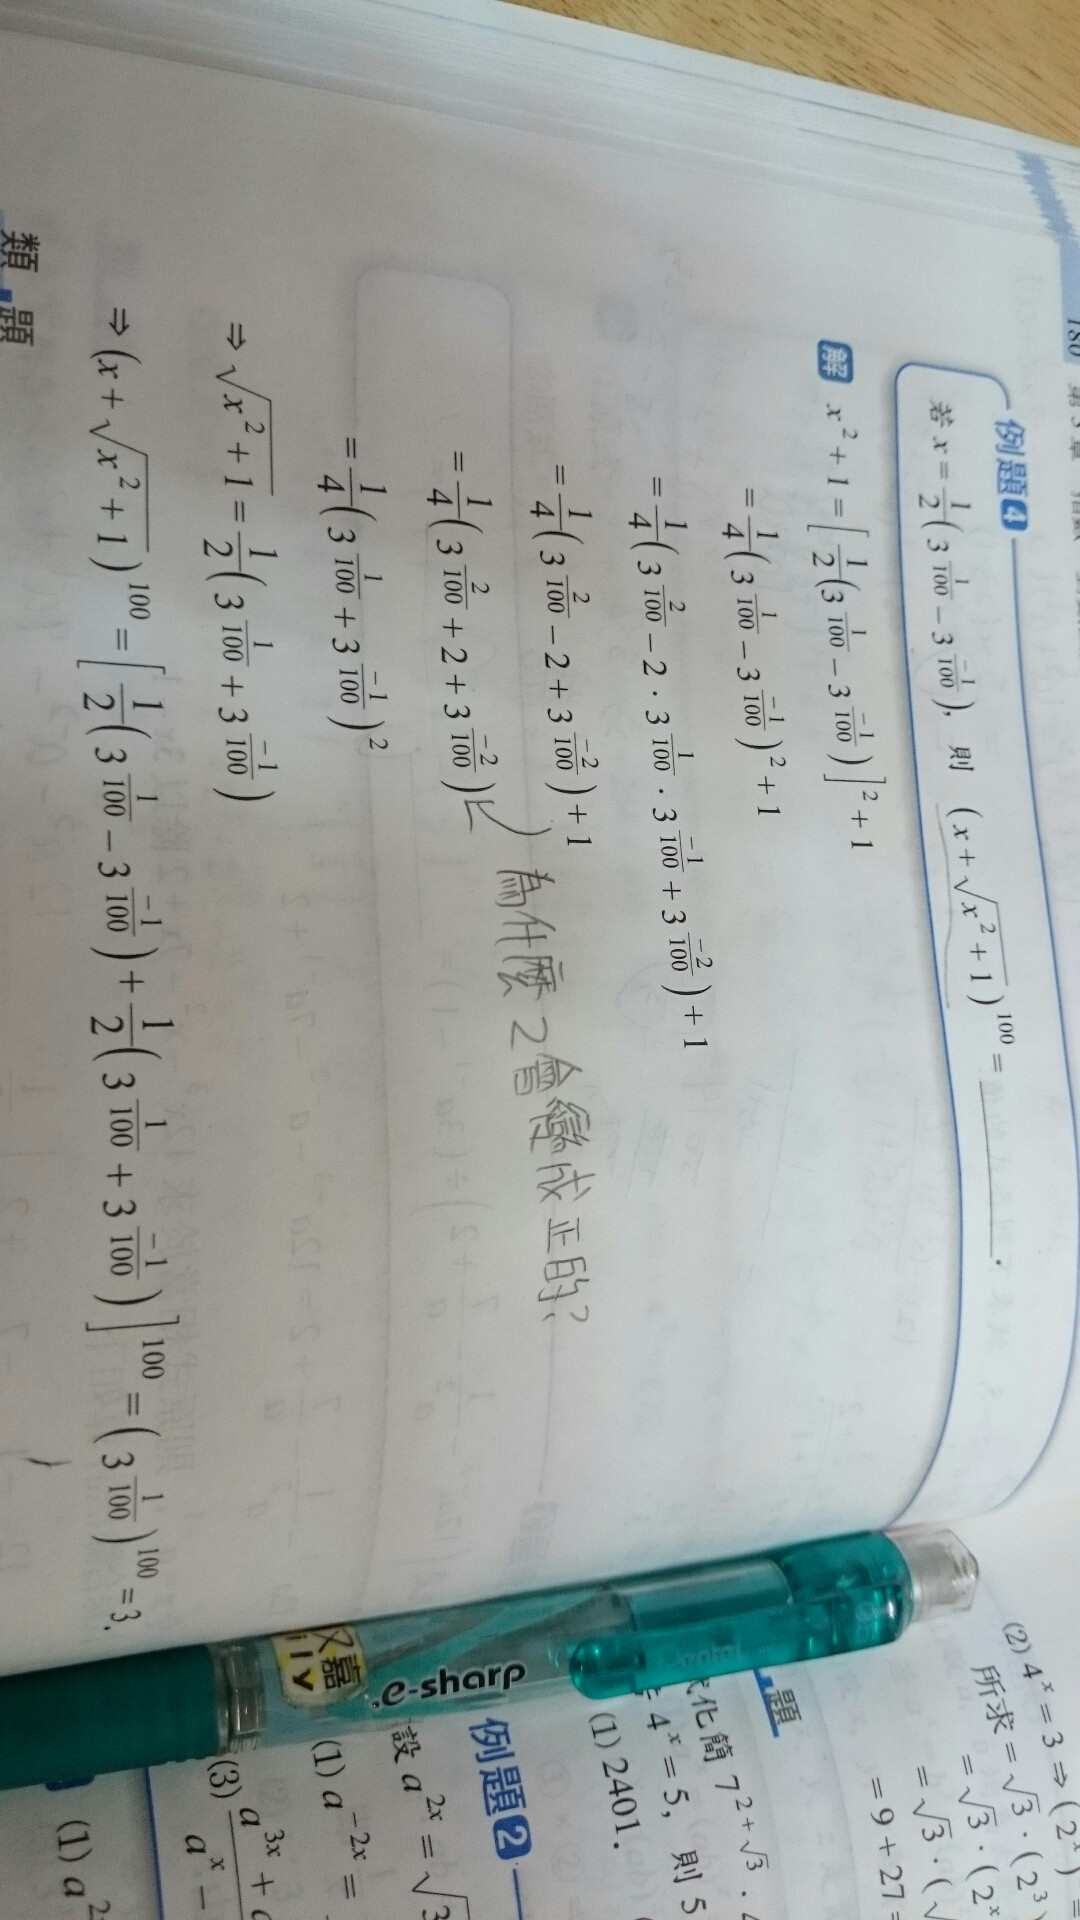 180 第3章
例題4
若 x = 1/2 (3^{1/100} - 3^{-1/100}), 則 (x + √(x^2 + 1))^{100} = ______.
解 x^2 + 1 = [1/2 (3^{1/100} - 3^{-1/100})]^2 + 1
= 1/4 (3^{1/100} - 3^{-1/100})^2 + 1
= 1/4 (3^{2/100} - 2 · 3^{1/100} · 3^{-1/100} + 3^{-2/100}) + 1
= 1/4 (3^{2/100} - 2 + 3^{-2/100}) + 1
= 1/4 (3^{2/100} + 2 + 3^{-2/100})
為什麼2會變成正的?
= 1/4 (3^{1/100} + 3^{-1/100})^2
⇒ √(x^2 + 1) = 1/2 (3^{1/100} + 3^{-1/100})
⇒ (x + √(x^2 + 1))^{100} = [1/2 (3^{1/100} - 3^{-1/100}) + 1/2 (3^{1/100} + 3^{-1/100})]^{100} = (3^{1/100})^{100} = 3.
類題
(2) 4^x = 3 ⇒ (2^x)
所求 = √3 · (2^3)
= √3 · (2^x
= √3 · (√
= 9 + 27 =
題
化簡 7^{2+√3} ·
4^x = 5, 則 5
(1) 2401.
例題2
設 a^{2x} = √3
(1) a^{-2x} =
(3) a^{3x} + a
a^x -
(1) a^2
.e-sharp
Pentel
嘉
ily